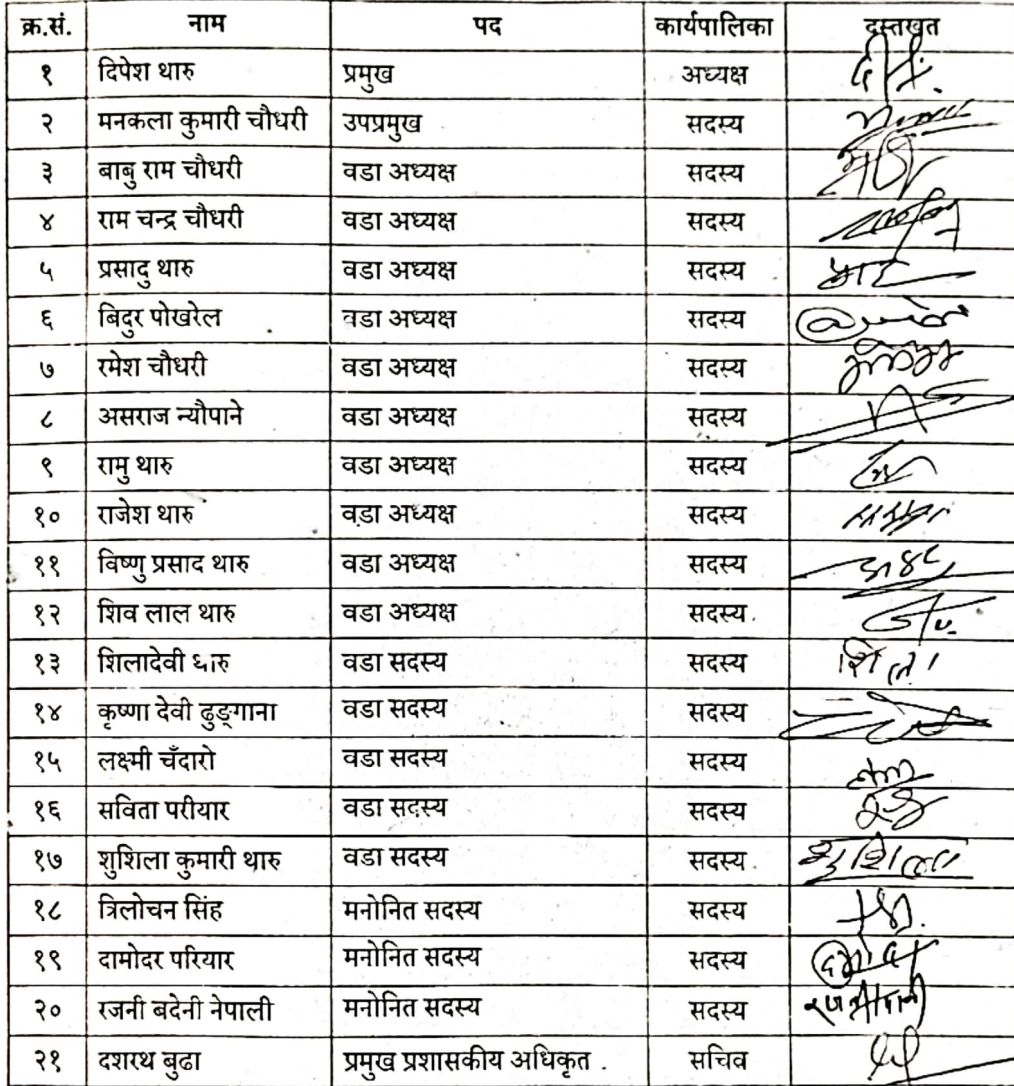 क्र.सं. नाम पद कार्यपालिका दस्तखुत
१ दिपेश थारु प्रमुख अध्यक्ष
२ मनकला कुमारी चौधरी उपप्रमुख सदस्य
३ बाबु राम चौधरी वडा अध्यक्ष सदस्य
४ राम चन्द्र चौधरी वडा अध्यक्ष सदस्य
५ प्रसादु थारु वडा अध्यक्ष सदस्य
६ बिदुर पोखरेल वडा अध्यक्ष सदस्य
७ रमेश चौधरी वडा अध्यक्ष सदस्य
८ असराज न्यौपाने वडा अध्यक्ष सदस्य
९ रामु थारु वडा अध्यक्ष सदस्य
१० राजेश थारु वडा अध्यक्ष सदस्य
११ विष्णु प्रसाद थारु वडा अध्यक्ष सदस्य
१२ शिव लाल थारु वडा अध्यक्ष सदस्य
१३ शिलादेवी थारु वडा सदस्य सदस्य शिला
१४ कृष्णा देवी ढुङ्गाना वडा सदस्य सदस्य
१५ लक्ष्मी चँदारो वडा सदस्य सदस्य
१६ सविता परीयार वडा सदस्य सदस्य
१७ शुशिला कुमारी थारु वडा सदस्य सदस्य शुशिला
१८ त्रिलोचन सिंह मनोनित सदस्य सदस्य
१९ दामोदर परियार मनोनित सदस्य सदस्य
२० रजनी बदेनी नेपाली मनोनित सदस्य सदस्य
२१ दशरथ बुढा प्रमुख प्रशासकीय अधिकृत सचिव